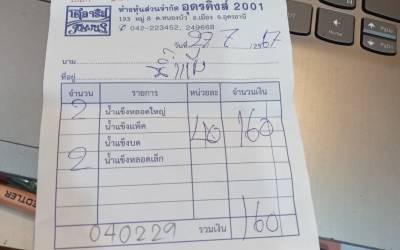 ห้างหุ้นส่วนจำกัด อุดรคิงส์ 2001
193 หมู่ 8 ต.หนองบัว อ.เมือง จ.อุดรธานี
042-223452, 249668
วันที่ 27 / 7 / 2567
นาม
ที่อยู่
จำนวน รายการ หน่วยละ จำนวนเงิน
2 น้ำแข็งหลอดใหญ่
น้ำแข็งแพ็ค 40 160
น้ำแข็งบด
2 น้ำแข็งหลอดเล็ก
040229 รวมเงิน 160